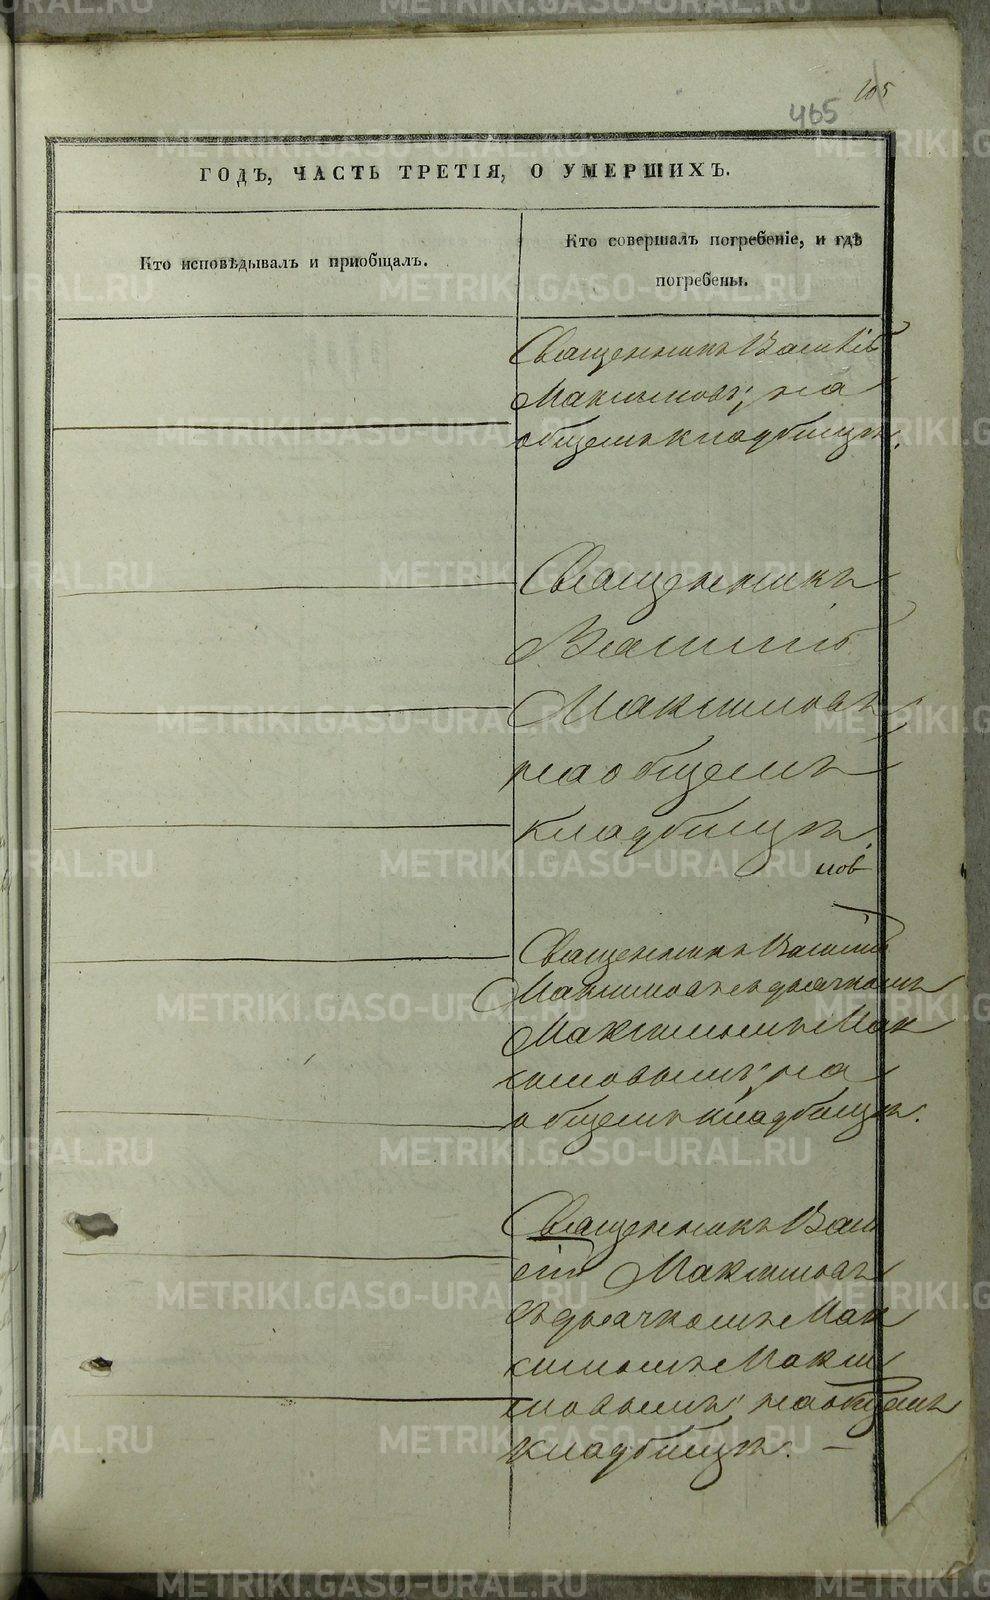 105
465
ГОДЪ, ЧАСТЬ ТРЕТІЯ, О УМЕРШИХЪ.
Кто исповѣдывалъ и приобщалъ.
Кто совершалъ погребеніе, и гдѣ
погребены.
Священникъ Василій
Максимовъ; на
общемъ кладбищѣ.
Священникъ
Василій
Максимовъ
на общемъ
кладбищѣ.
Священникъ Василій
Максимовъ съ дьячкомъ
Максимомъ Мак
симовымъ; на
общемъ кладбищѣ.
Священникъ Васи
лій Максимовъ
съ дьячкомъ Мак
симомъ Макси
мовымъ; на общемъ
кладбищѣ. —
METRIKI.GASO-URAL.RU